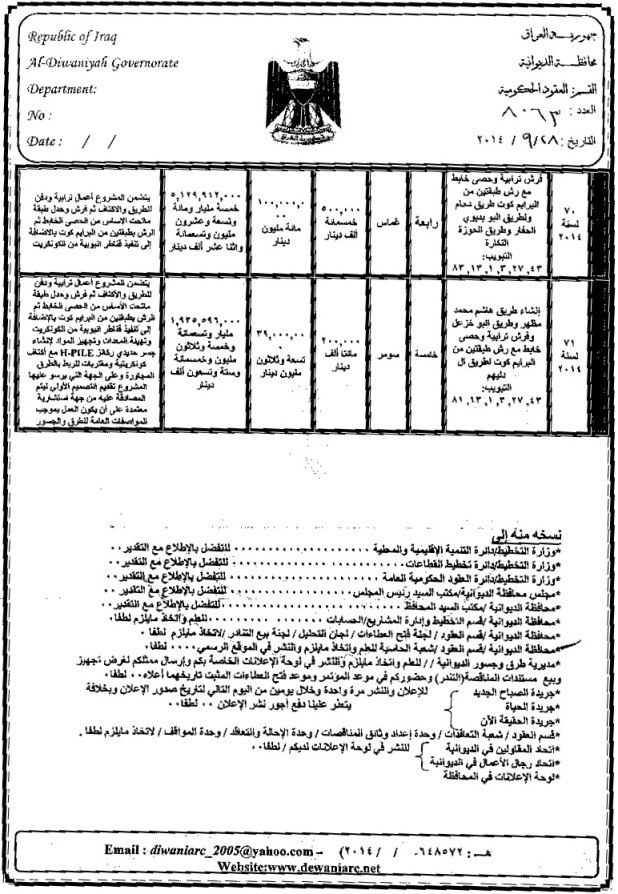 Republic of Iraq
Al-Diwaniyah Governorate
Department:
No :
Date : / /
جمهورية العراق
محافظة الديوانية
القسم: العقود الحكومية
العدد: ٨٠٦٣
التاريخ: ٢٠١٤ / ٩/٢٨
٧٠
لسنة
٢٠١٤
فرش ترابية وحصى خابط
مع رش طبقتين من
البرايم كوت طريق دحام
ولطريق البو بديوي
الحفار وطريق الحوزة
التكارة
التبويب:
٨٣,١٣,١,٣,٢٧,٤٣
رابعة
غماس
٥٠٠,٠٠٠
خمسمائة
ألف دينار
١٠٠,٠٠٠,٠
٠٠
مائة مليون
دينار
٥,١٢٩,٩١٢,٠٠٠
خمسة مليار ومائة
وتسعة وعشرون
مليون وتسعمائة
واثنا عشر ألف دينار
يتضمن المشروع أعمال ترابية ودفن
للطريق والاكتاف ثم فرش وحدل طبقة
ماتحت الاساس من الحصى الخابط ثم
الرش بطبقتين من البرايم كوت بالاضافة
إلى تنفيذ قناطر انبوبية من الكونكريت
٧١
لسنة
٢٠١٤
إنشاء طريق هاشم محمد
مظهر وطريق البو خزعل
وفرش ترابية وحصى
خابط مع رش طبقتين من
البرايم كوت لطريق آل
دليهم
التبويب:
٨١,١٣,١,٣,٢٧,٤٣
خامسة
سومر
٢٠٠,٠٠٠
مائتا ألف
دينار
٣٩,٠٠٠,٠٠٠
تسعة وثلاثون
مليون دينار
١,٩٣٥,٥٩٦,٠٠٠
مليار وتسعمائة
وخمسة وثلاثون
مليون وخمسمائة
وستة وتسعون ألف
دينار
يتضمن المشروع أعمال ترابية ودفن
للطريق والأكتاف ثم فرش وحدل طبقة
ماتحت الأساس من الحصى الخابط ثم
الرش بطبقتين من البرايم كوت بالإضافة
إلى تنفيذ قناطر انبوبية من الكونكريت
وتهيئة المعدات وتجهيز المواد لإنشاء
جسر حديدي ركائز H-PILE مع أكتاف
كونكريتية ومقتربات للربط بالطرق
المجاورة وعلى الجهة التي يرسو عليها
المشروع تقديم التصميم الأولي ليتم
المصادقة عليه من جهة استشارية
معتمدة على أن يكون العمل بموجب
المواصفات العامة للطرق والجسور
نسخه منه إلى
*وزارة التخطيط/دائرة التنمية الإقليمية والمحلية .................. للتفضل بالإطلاع مع التقدير ٠٠
*وزارة التخطيط/دائرة تخطيط القطاعات .................. للتفضل بالإطلاع مع التقدير ٠٠
*وزارة التخطيط/دائرة العقود الحكومية العامة .................. للتفضل بالإطلاع مع التقدير ٠٠
*مجلس محافظة الديوانية/مكتب السيد رئيس المجلس .................. للتفضل بالإطلاع مع التقدير ٠٠
*محافظة الديوانية /مكتب السيد المحافظ .................. للتفضل بالإطلاع مع التقدير ٠٠
*محافظة الديوانية /قسم التخطيط وإدارة المشاريع/الحسابات .................. للعلم واتخاذ مايلزم لطفا ٠
*محافظة الديوانية /قسم العقود / لجنة فتح العطاءات / لجان التحليل / لجنة بيع التنادر /لاتخاذ مايلزم لطفا ٠
*محافظة الديوانية /قسم العقود /شعبة الحاسبة للعلم وإتخاذ مايلزم والنشر في الموقع الرسمي ٠٠٠٠٠ لطفا ٠
*مديرية طرق وجسور الديوانية / / للعلم واتخاذ مايلزم والنشر في لوحة الإعلانات الخاصة بكم وإرسال ممثلكم لغرض تجهيز
وبيع مستندات المناقصة(التندر) وحضوركم في موعد المؤتمر وموعد فتح العطاءات المثبت تاريخهما أعلاه ٠٠ لطفا ٠
*جريدة الصباح الجديد
*جريدة الحياة
*جريدة الحقيقة الآن
للإعلان والنشر مرة واحدة وخلال يومين من اليوم التالي لتاريخ صدور الإعلان وبخلافة
يتعذر علينا دفع أجور نشر الإعلان ٠٠ لطفا ٠
*قسم العقود / شعبة التعاقدات / وحدة إعداد وثائق المناقصات / وحدة الإحالة والتعاقد / وحدة المواقف / لاتخاذ مايلزم لطفا ٠
*اتحاد المقاولين في الديوانية
*اتحاد رجال الأعمال في الديوانية
*لوحة الإعلانات في المحافظة
للنشر في لوحة الإعلانات لديكم / لطفا ٠٠
Email : diwaniarc_2005@yahoo.com – (٢٠١٤ / / هـ : ٦٤٨٥٧٢
Website:www.dewaniarc.net